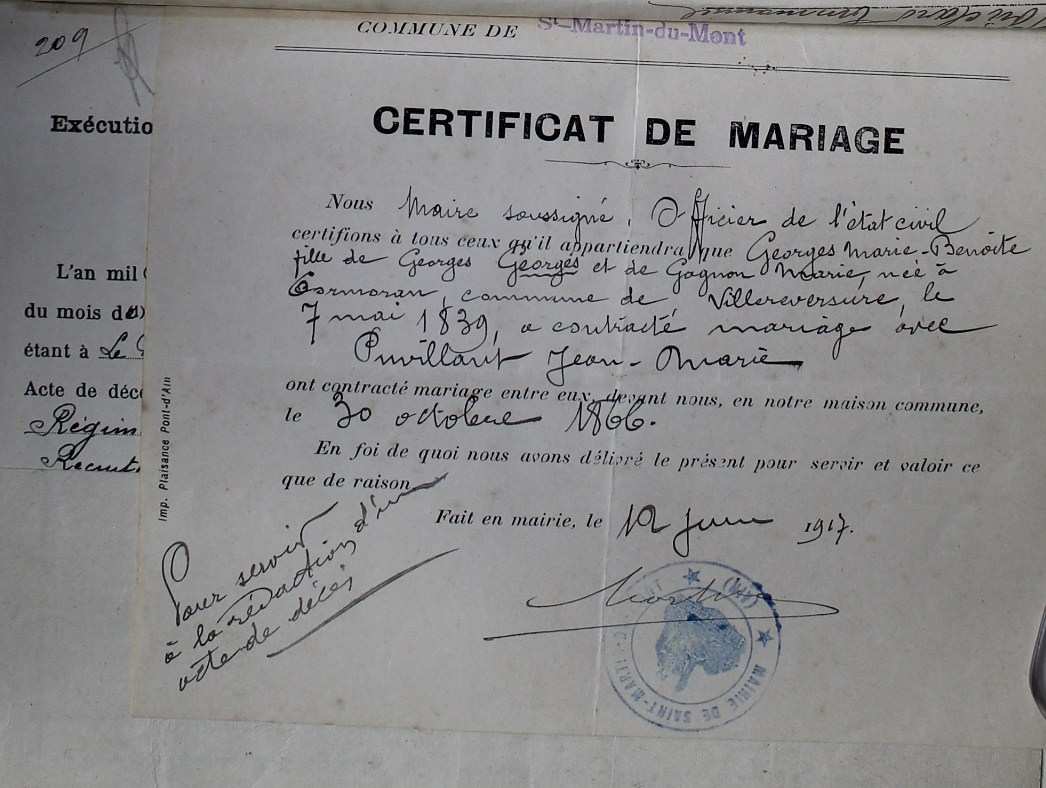 209
COMMUNE DE St-Martin-du-Mont
Exécutio
L'an mil
du mois d
étant à Le
Acte de déc
Régim
Recrut
CERTIFICAT DE MARIAGE
Nous Maire soussigné, Officier de l'état civil
certifions à tous ceux qu'il appartiendra que Georges Marie-Benoîte
fille de Georges Georges et de Gagnon Marie, née à
Cormoran, commune de Villereversure, le
7 mai 1839, a contracté mariage avec
Puvillant Jean-Marie
ont contracté mariage entre eux, devant nous, en notre maison commune,
le 30 octobre 1866.
En foi de quoi nous avons délivré le présent pour servir et valoir ce
que de raison
Fait en mairie, le 12 juin 1917.
Pour servir
à la rédaction d'un
acte de décès
Imp. Plaisance Pont-d'Ain
MAIRIE DE SAINT-MARTIN-DU-MONT (AIN)